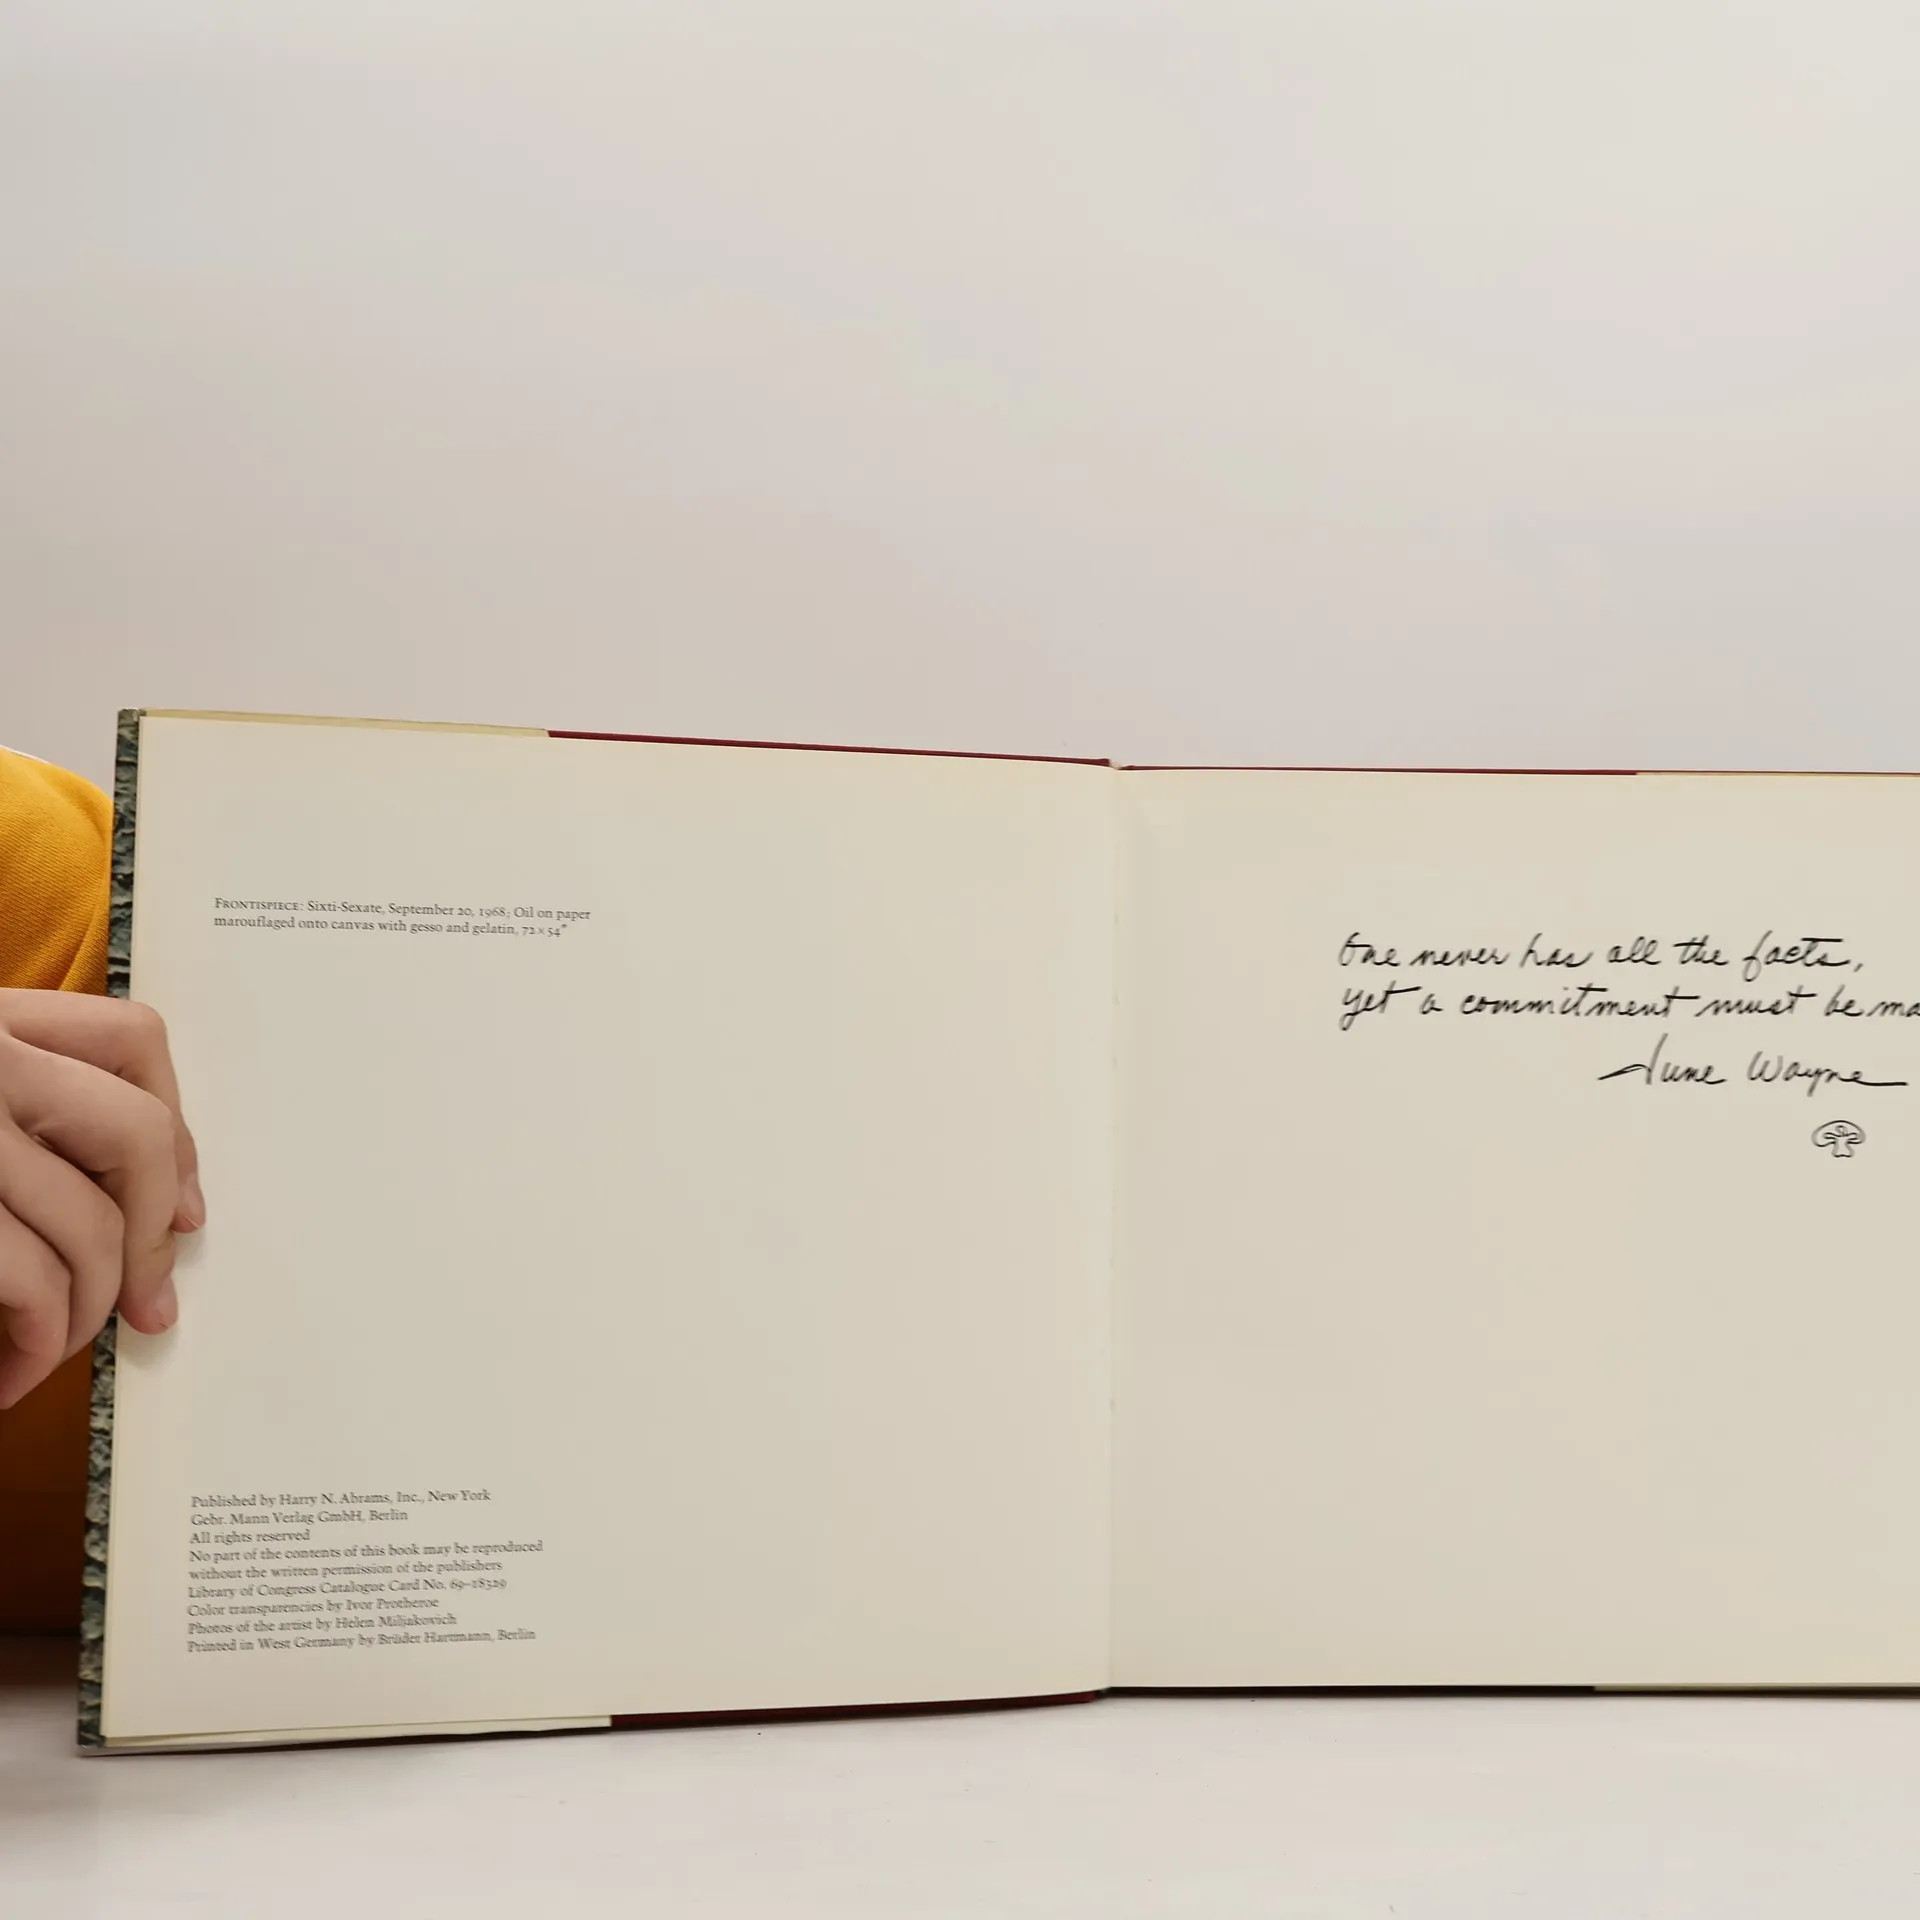 FRONTISPIECE: Sixti-Sexate, September 20, 1968; Oil on paper
marouflaged onto canvas with gesso and gelatin, 72 × 54"
Published by Harry N. Abrams, Inc., New York
Gebr. Mann Verlag GmbH, Berlin
All rights reserved
No part of the contents of this book may be reproduced
without the written permission of the publishers
Library of Congress Catalogue Card No. 69–18329
Color transparencies by Ivor Protheroe
Photos of the artist by Helen Miljakovich
Printed in West Germany by Brüder Hartmann, Berlin
One never has all the facts,
yet a commitment must be
June Wayne